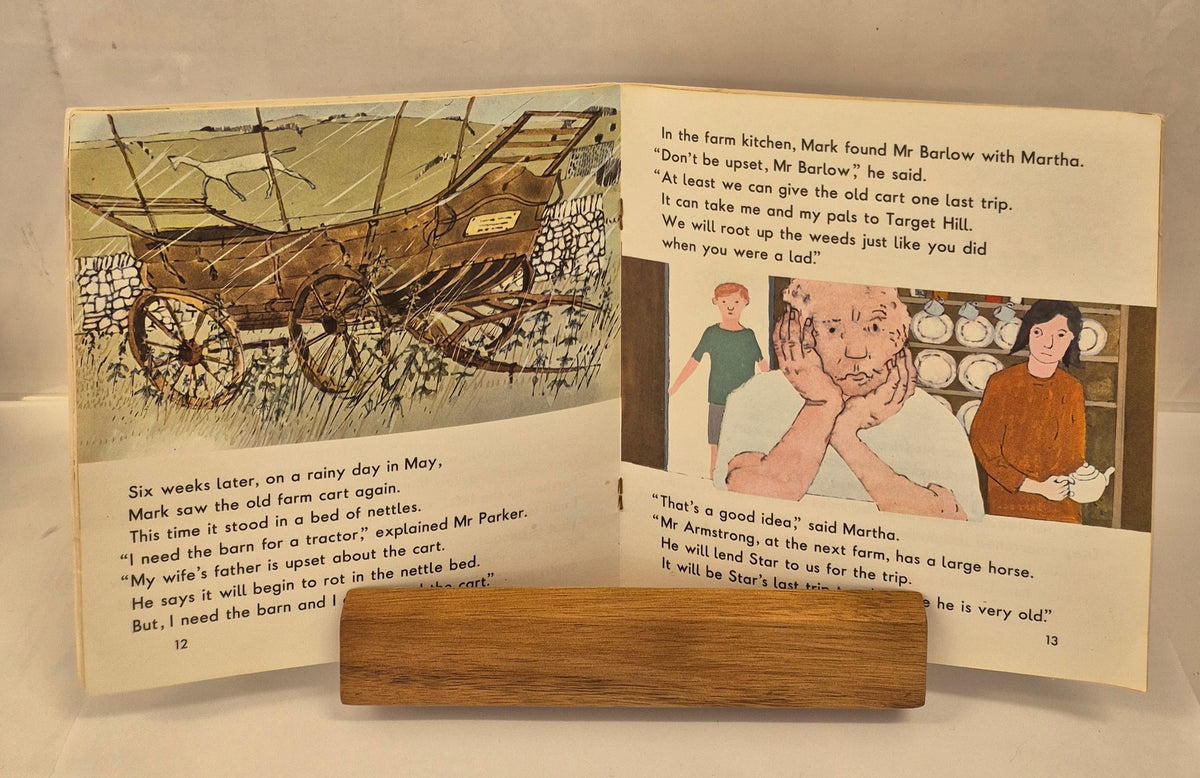 Six weeks later, on a rainy day in May,
Mark saw the old farm cart again.
This time it stood in a bed of nettles.
“I need the barn for a tractor,” explained Mr Parker.
“My wife’s father is upset about the cart.
He says it will begin to rot in the nettle bed.
But, I need the barn and I the cart.”
12
In the farm kitchen, Mark found Mr Barlow with Martha.
“Don’t be upset, Mr Barlow,” he said.
“At least we can give the old cart one last trip.
It can take me and my pals to Target Hill.
We will root up the weeds just like you did
when you were a lad.”
“That’s a good idea,” said Martha.
“Mr Armstrong, at the next farm, has a large horse.
He will lend Star to us for the trip.
It will be Star’s last trip he is very old.”
13